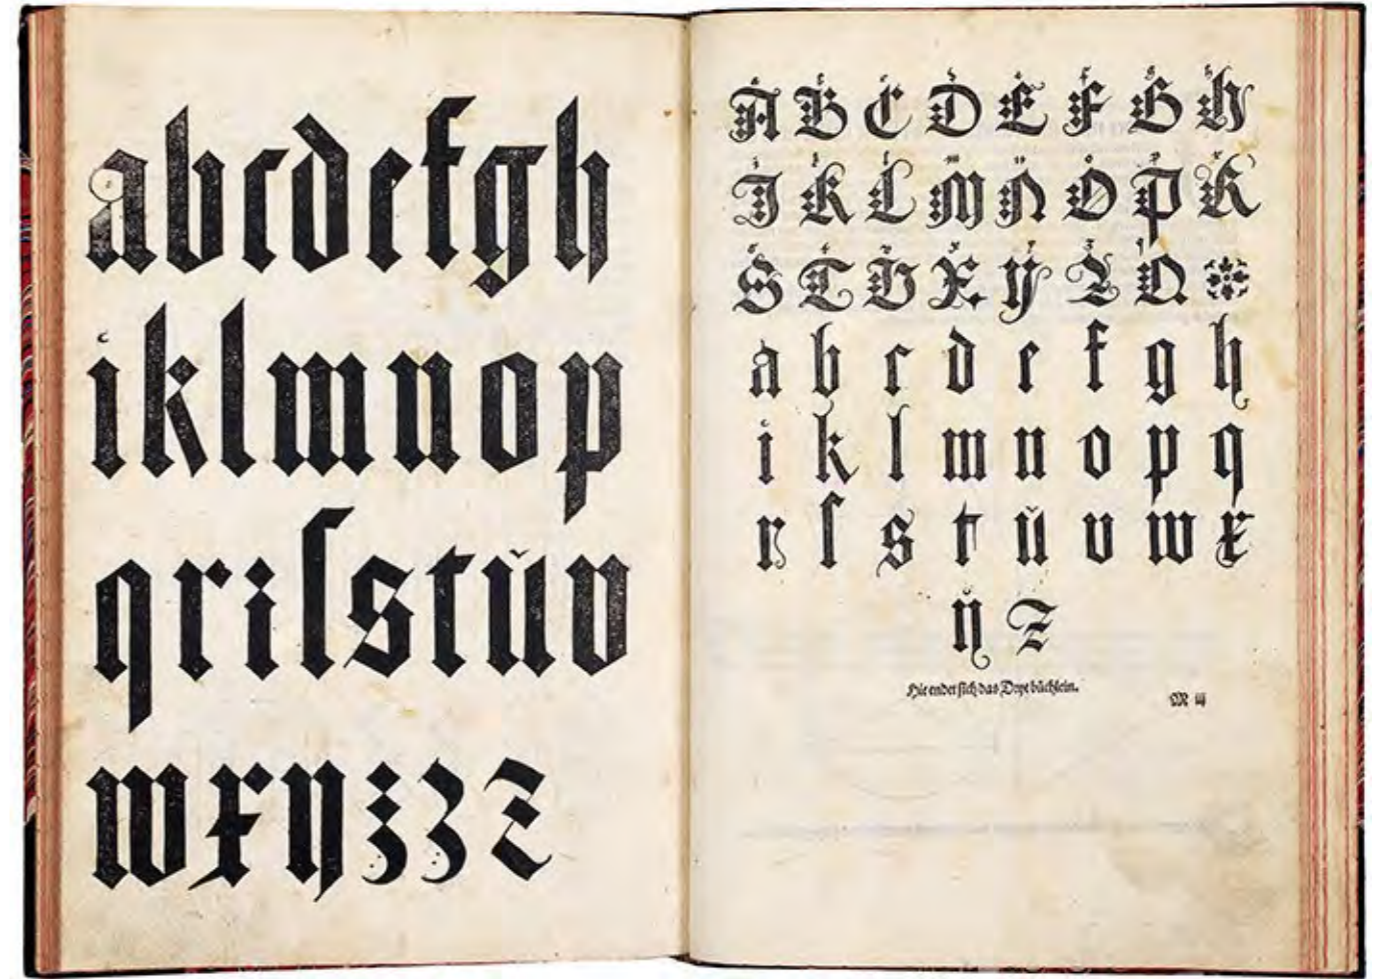 abcdefgh
iklmnop
qriſstŭv
wxyzzz
A B C D E F G H
I K L M N O P R
S T V X Y Z Q
a b c d e f g h
i k l m n o p q
r ſ s t ŭ v w x
ÿ z
Hie endet ſich das Dryt büchlein.
M iij